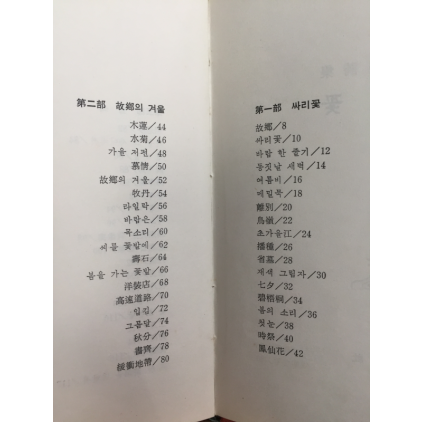 第一部 싸리꽃
故鄕/8
싸리꽃/10
바람 한 줄기/12
동짓날 새벽/14
여름비/16
메밀묵/18
離別/20
鳥嶺/22
초가을江/24
播種/26
省墓/28
재색 그림자/30
七夕/32
碧梧桐/34
봄의 소리/36
첫눈/38
時祭/40
鳳仙花/42
第二部 故鄕의 겨울
木蓮/44
水菊/46
가을 저편/48
慕情/50
故鄕의 겨울/52
牧丹/54
라일락/56
바람은/58
목소리/60
씨를 꽃밭에/62
壽石/64
봄을 가는 꽃밭/66
洋裝店/68
高速道路/70
입김/72
그믐달/74
秋分/76
書齋/78
緩衝地帶/80